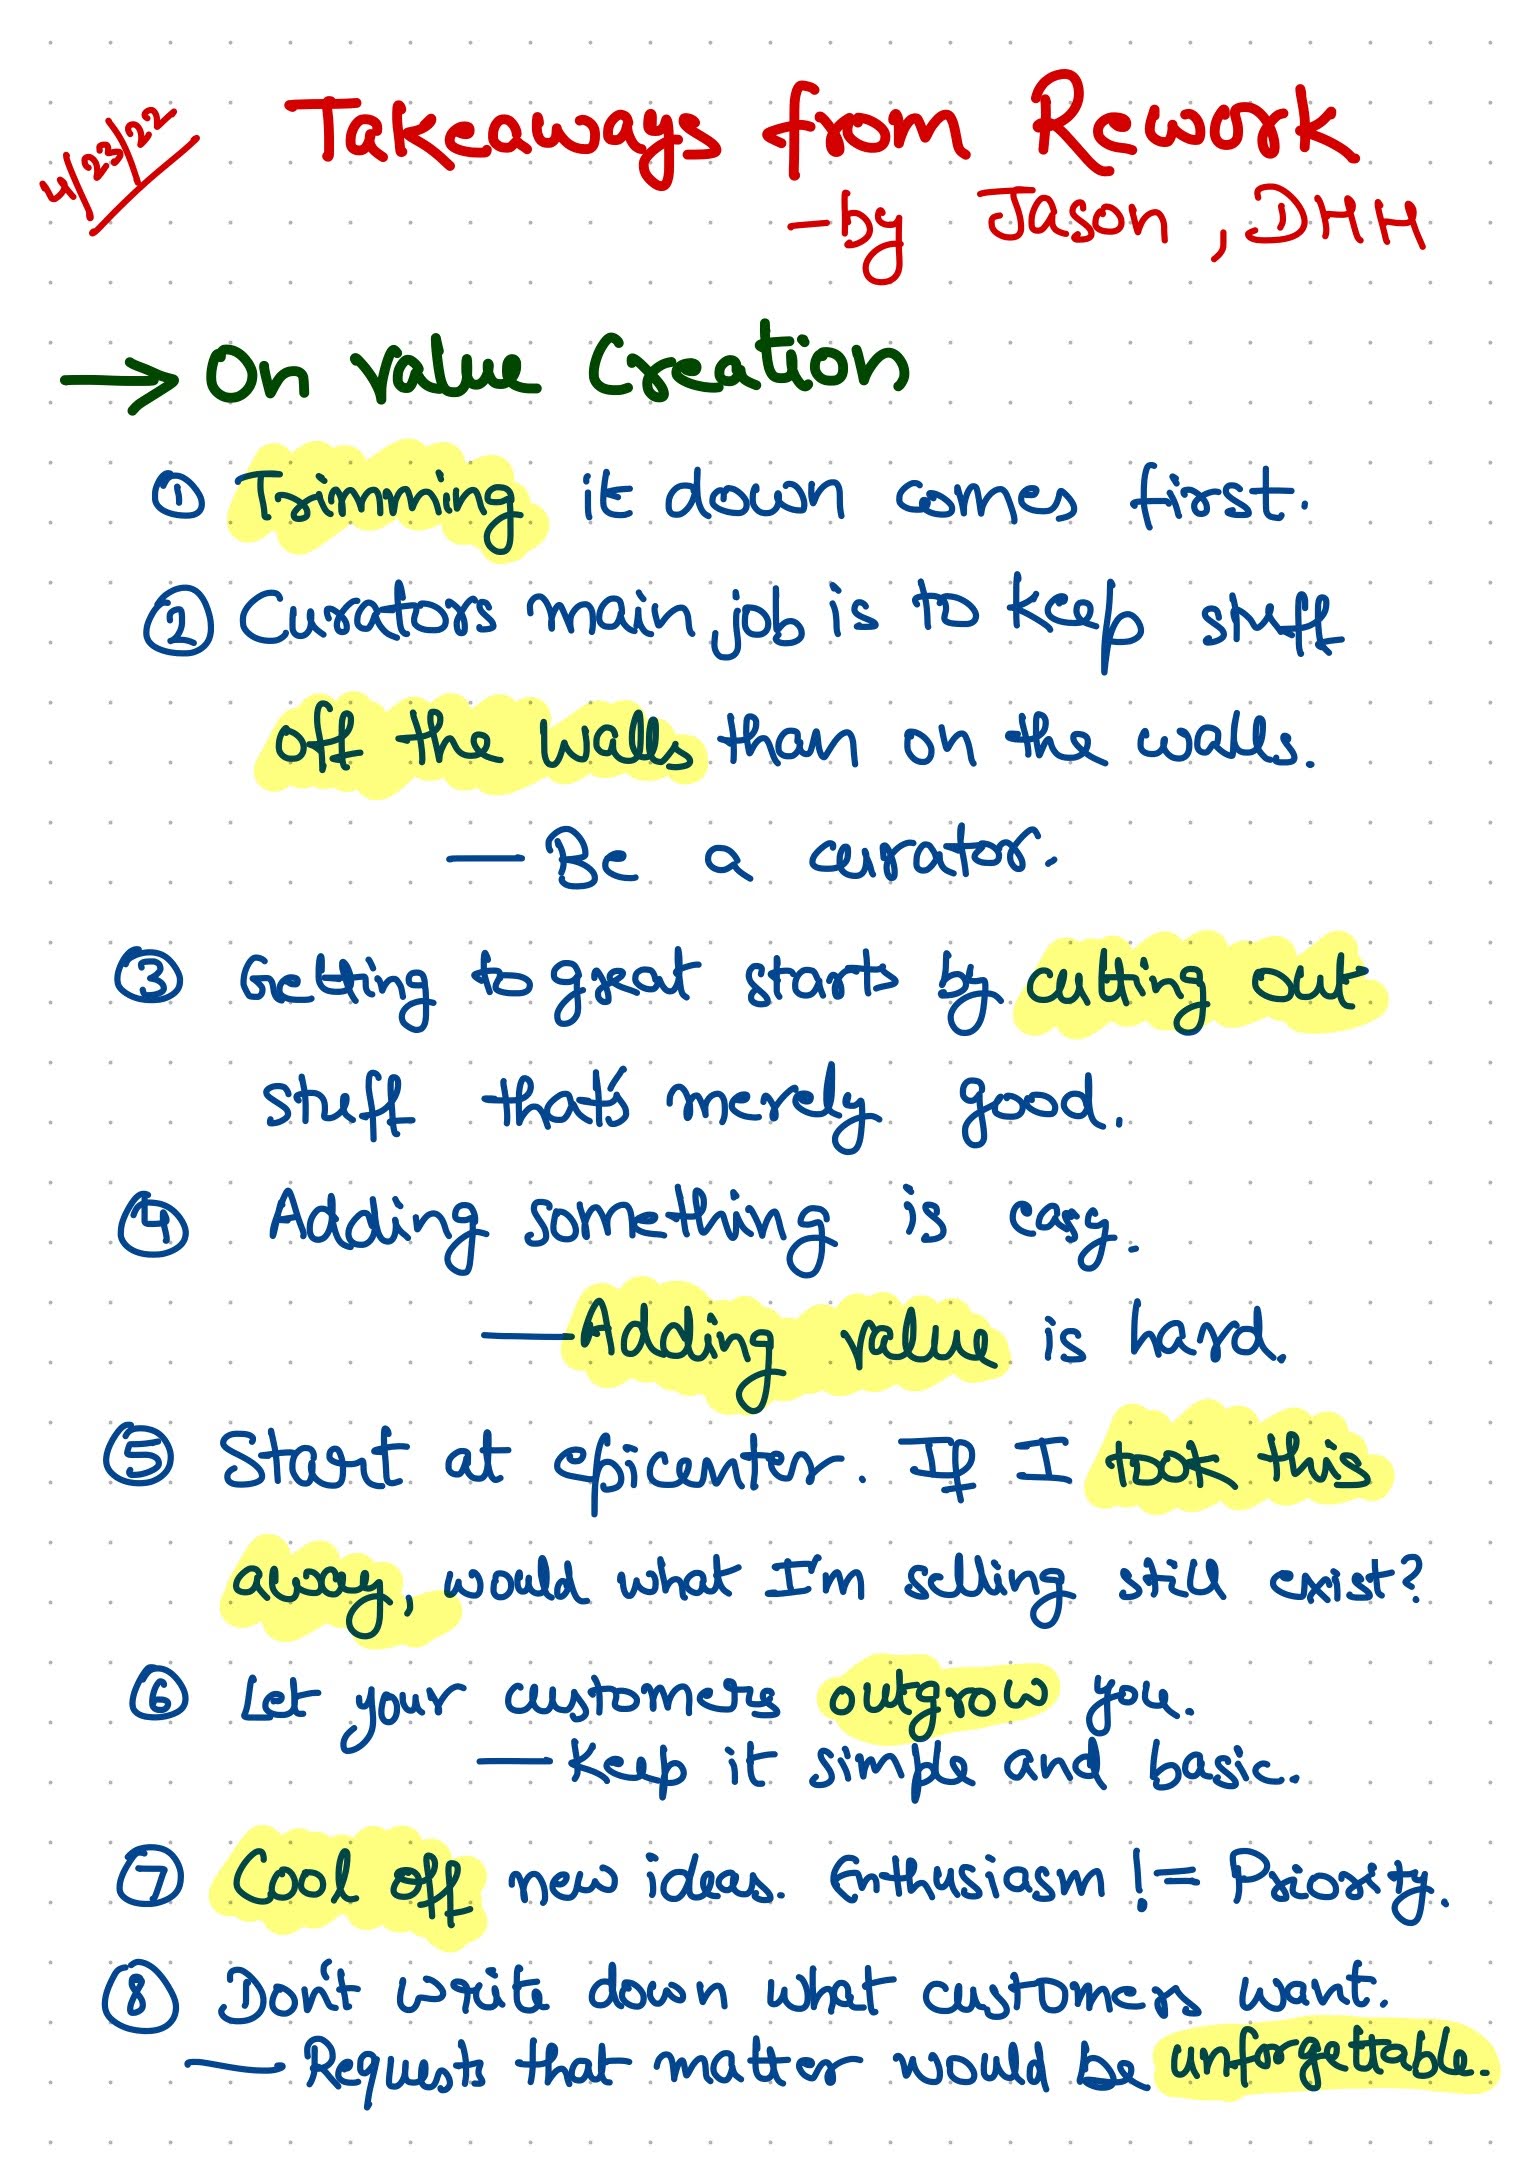 4/23/22
Takeaways from Rework
- by Jason, DHH
→ On Value Creation
① Trimming it down comes first.
② Curators main job is to keep stuff
off the walls than on the walls.
— Be a curator.
③ Getting to great starts by cutting out
stuff that's merely good.
④ Adding something is easy.
— Adding value is hard.
⑤ Start at epicenter. If I took this
away, would what I'm selling still exist?
⑥ Let your customers outgrow you.
— Keep it simple and basic.
⑦ Cool off new ideas. Enthusiasm != Priority.
⑧ Don't write down what customers want.
— Requests that matter would be unforgettable.